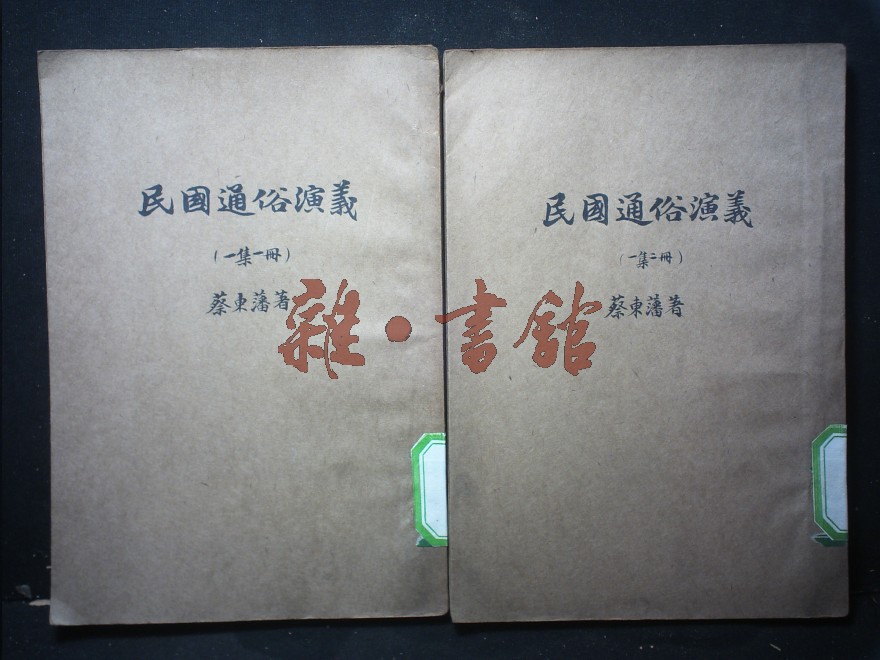 民國通俗演義
(一集一冊)
蔡東藩著
民國通俗演義
(一集二冊)
蔡東藩著
雜·書館